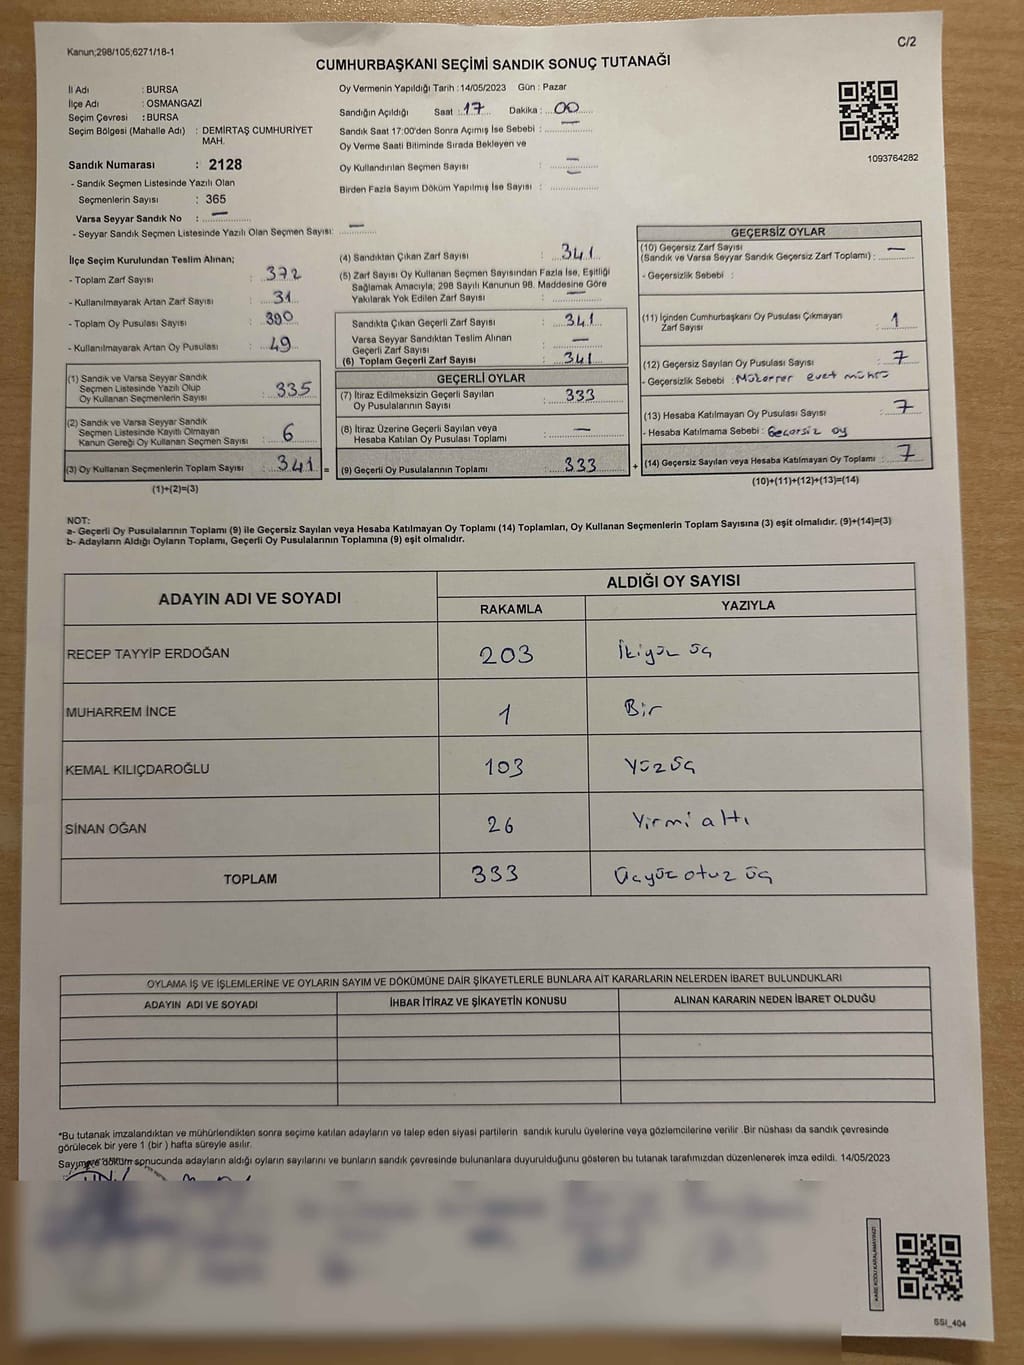 Kanun;298/105,6271/18-1
C/2
CUMHURBAŞKANI SEÇİMİ SANDIK SONUÇ TUTANAĞI
İl Adı : BURSA
İlçe Adı : OSMANGAZİ
Seçim Çevresi : BURSA
Seçim Bölgesi (Mahalle Adı) : DEMİRTAŞ CUMHURİYET
MAH.
Sandık Numarası : 2128
- Sandık Seçmen Listesinde Yazılı Olan
Seçmenlerin Sayısı : 365
Varsa Seyyar Sandık No : —
- Seyyar Sandık Seçmen Listesinde Yazılı Olan Seçmen Sayısı: —
Oy Vermenin Yapıldığı Tarih :14/05/2023 Gün : Pazar
Sandığın Açıldığı Saat : 17 Dakika : 00
Sandık Saat 17:00'den Sonra Açımış İse Sebebi : —
Oy Verme Saati Bitiminde Sırada Bekleyen ve
Oy Kullandırılan Seçmen Sayısı : —
Birden Fazla Sayım Döküm Yapılmış İse Sayısı : —
1093764282
İlçe Seçim Kurulundan Teslim Alınan;
- Toplam Zarf Sayısı : 372
- Kullanılmayarak Artan Zarf Sayısı : 31
- Toplam Oy Pusulası Sayısı : 390
- Kullanılmayarak Artan Oy Pusulası : 49
(1) Sandık ve Varsa Seyyar Sandık
Seçmen Listesinde Yazılı Olup
Oy Kullanan Seçmenlerin Sayısı : 335
(2) Sandık ve Varsa Seyyar Sandık
Seçmen Listesinde Kayıtlı Olmayan
Kanun Gereği Oy Kullanan Seçmen Sayısı : 6
(3) Oy Kullanan Seçmenlerin Toplam Sayısı : 341 =
(1)+(2)=(3)
(4) Sandıktan Çıkan Zarf Sayısı : 341
(5) Zarf Sayısı Oy Kullanan Seçmen Sayısından Fazla İse, Eşitliği
Sağlamak Amacıyla; 298 Sayılı Kanunun 98. Maddesine Göre
Yakılarak Yok Edilen Zarf Sayısı : —
Sandıkta Çıkan Geçerli Zarf Sayısı : 341
Varsa Seyyar Sandıktan Teslim Alınan
Geçerli Zarf Sayısı : —
(6) Toplam Geçerli Zarf Sayısı : 341
GEÇERLİ OYLAR
(7) İtiraz Edilmeksizin Geçerli Sayılan
Oy Pusulalarının Sayısı : 333
(8) İtiraz Üzerine Geçerli Sayılan veya
Hesaba Katılan Oy Pusulası Toplamı : —
(9) Geçerli Oy Pusulalarının Toplamı : 333 +
GEÇERSİZ OYLAR
(10) Geçersiz Zarf Sayısı
(Sandık ve Varsa Seyyar Sandık Geçersiz Zarf Toplamı) : —
- Geçersizlik Sebebi :
(11) İçinden Cumhurbaşkanı Oy Pusulası Çıkmayan
Zarf Sayısı : 1
(12) Geçersiz Sayılan Oy Pusulası Sayısı : 7
- Geçersizlik Sebebi : Mükerrer evet mührü
(13) Hesaba Katılmayan Oy Pusulası Sayısı : 7
- Hesaba Katılmama Sebebi : Geçersiz oy
(14) Geçersiz Sayılan veya Hesaba Katılmayan Oy Toplamı : 7
(10)+(11)+(12)+(13)=(14)
NOT:
a- Geçerli Oy Pusulalarının Toplamı (9) ile Geçersiz Sayılan veya Hesaba Katılmayan Oy Toplamı (14) Toplamları, Oy Kullanan Seçmenlerin Toplam Sayısına (3) eşit olmalıdır. (9)+(14)=(3)
b- Adayların Aldığı Oyların Toplamı, Geçerli Oy Pusulalarının Toplamına (9) eşit olmalıdır.
ADAYIN ADI VE SOYADI
ALDIĞI OY SAYISI
RAKAMLA YAZIYLA
RECEP TAYYİP ERDOĞAN 203 İkiyüz üç
MUHARREM İNCE 1 Bir
KEMAL KILIÇDAROĞLU 103 Yüz üç
SİNAN OĞAN 26 Yirmi altı
TOPLAM 333 Üçyüz otuz üç
OYLAMA İŞ VE İŞLEMLERİNE VE OYLARIN SAYIM VE DÖKÜMÜNE DAİR ŞİKAYETLERLE BUNLARA AİT KARARLARIN NELERDEN İBARET BULUNDUKLARI
ADAYIN ADI VE SOYADI İHBAR İTİRAZ VE ŞİKAYETİN KONUSU ALINAN KARARIN NEDEN İBARET OLDUĞU
*Bu tutanak imzalandıktan ve mühürlendikten sonra seçime katılan adayların ve talep eden siyasi partilerin sandık kurulu üyelerine veya gözlemcilerine verilir .Bir nüshası da sandık çevresinde
görülecek bir yere 1 (bir ) hafta süreyle asılır.
Sayım ve döküm sonucunda adayların aldığı oyların sayılarını ve bunların sandık çevresinde bulunanlara duyurulduğunu gösteren bu tutanak tarafımızdan düzenlenerek imza edildi. 14/05/2023
KARE KODU KARALAMAYINIZ!
SSI_404